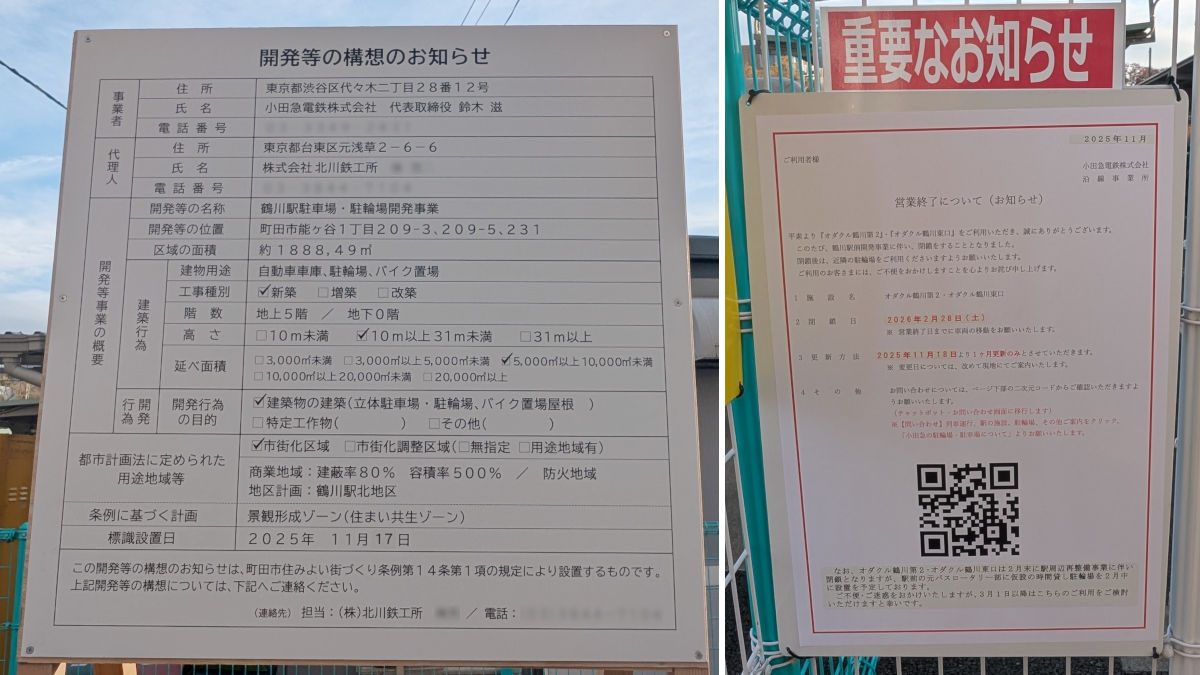 開発等の構想のお知らせ
事業者
住所 東京都渋谷区代々木二丁目28番12号
氏名 小田急電鉄株式会社 代表取締役 鈴木 滋
電話番号
代理人
住所 東京都台東区元浅草2-6-6
氏名 株式会社 北川鉄工所
電話番号
開発等事業の概要
開発等の名称 鶴川駅駐車場・駐輪場開発事業
開発等の位置 町田市能ヶ谷1丁目209-3、209-5、231
区域の面積 約1888,49㎡
建築行為
建物用途 自動車車庫、駐輪場、バイク置場
工事種別 ☑新築 □増築 □改築
階数 地上5階 / 地下0階
高さ □10m未満 ☑10m以上31m未満 □31m以上
延べ面積 □3,000㎡未満 □3,000㎡以上5,000㎡未満 ☑5,000㎡以上10,000㎡未満
□10,000㎡以上20,000㎡未満 □20,000㎡以上
開発行為
開発行為の目的 ☑建築物の建築(立体駐車場・駐輪場、バイク置場屋根 )
□特定工作物( ) □その他( )
都市計画法に定められた
用途地域等
☑市街化区域 □市街化調整区域(□無指定 □用途地域有)
商業地域:建蔽率80% 容積率500% / 防火地域
地区計画:鶴川駅北地区
条例に基づく計画 景観形成ゾーン(住まい共生ゾーン)
標識設置日 2025年 11月17日
この開発等の構想のお知らせは、町田市住みよい街づくり条例第14条第1項の規定により設置するものです。
上記開発等の構想については、下記へご連絡ください。
(連絡先) 担当:(株)北川鉄工所 / 電話:
重要なお知らせ
2025年11月
ご利用者様
小田急電鉄株式会社
沿線事業所
営業終了について(お知らせ)
平素より『オダクル鶴川第2』・『オダクル鶴川東口』をご利用いただき、誠にありがとうございます。
このたび、鶴川駅前開発事業に伴い、閉鎖をすることとなりました。
閉鎖後は、近隣の駐輪場をご利用くださいますようお願いいたします。
ご利用のお客さまには、ご不便をおかけしますことを心よりお詫び申し上げます。
1 施設名 オダクル鶴川第2・オダクル鶴川東口
2 閉鎖日 2026年2月28日(土)
※ 営業終了日までに車両の移動をお願いいたします。
3 更新方法 2025年11月18日より1ヶ月更新のみとさせていただきます。
※ 変更日については、改めて現地にてご案内いたします。
4 その他 お問い合わせについては、ページ下部の二次元コードからご確認いただきますよ
うお願いいたします。
(チャットボット・お問い合わせ画面に移行します)
※【問い合わせ】列車運行、駅の施設、駐輪場、その他ご案内をクリック、
「小田急の駐輪場・駐車場について」よりお願いいたします。
なお、オダクル鶴川第2・オダクル鶴川東口は2月末に駅周辺再整備事業に伴い
閉鎖となりますが、駅前の元バスロータリー部に仮設の時間貸し駐輪場を2月中
に設置を予定しております。
ご不便・ご迷惑をおかけいたしますが、3月1日以降はこちらのご利用をご検討
いただけますと幸いです。